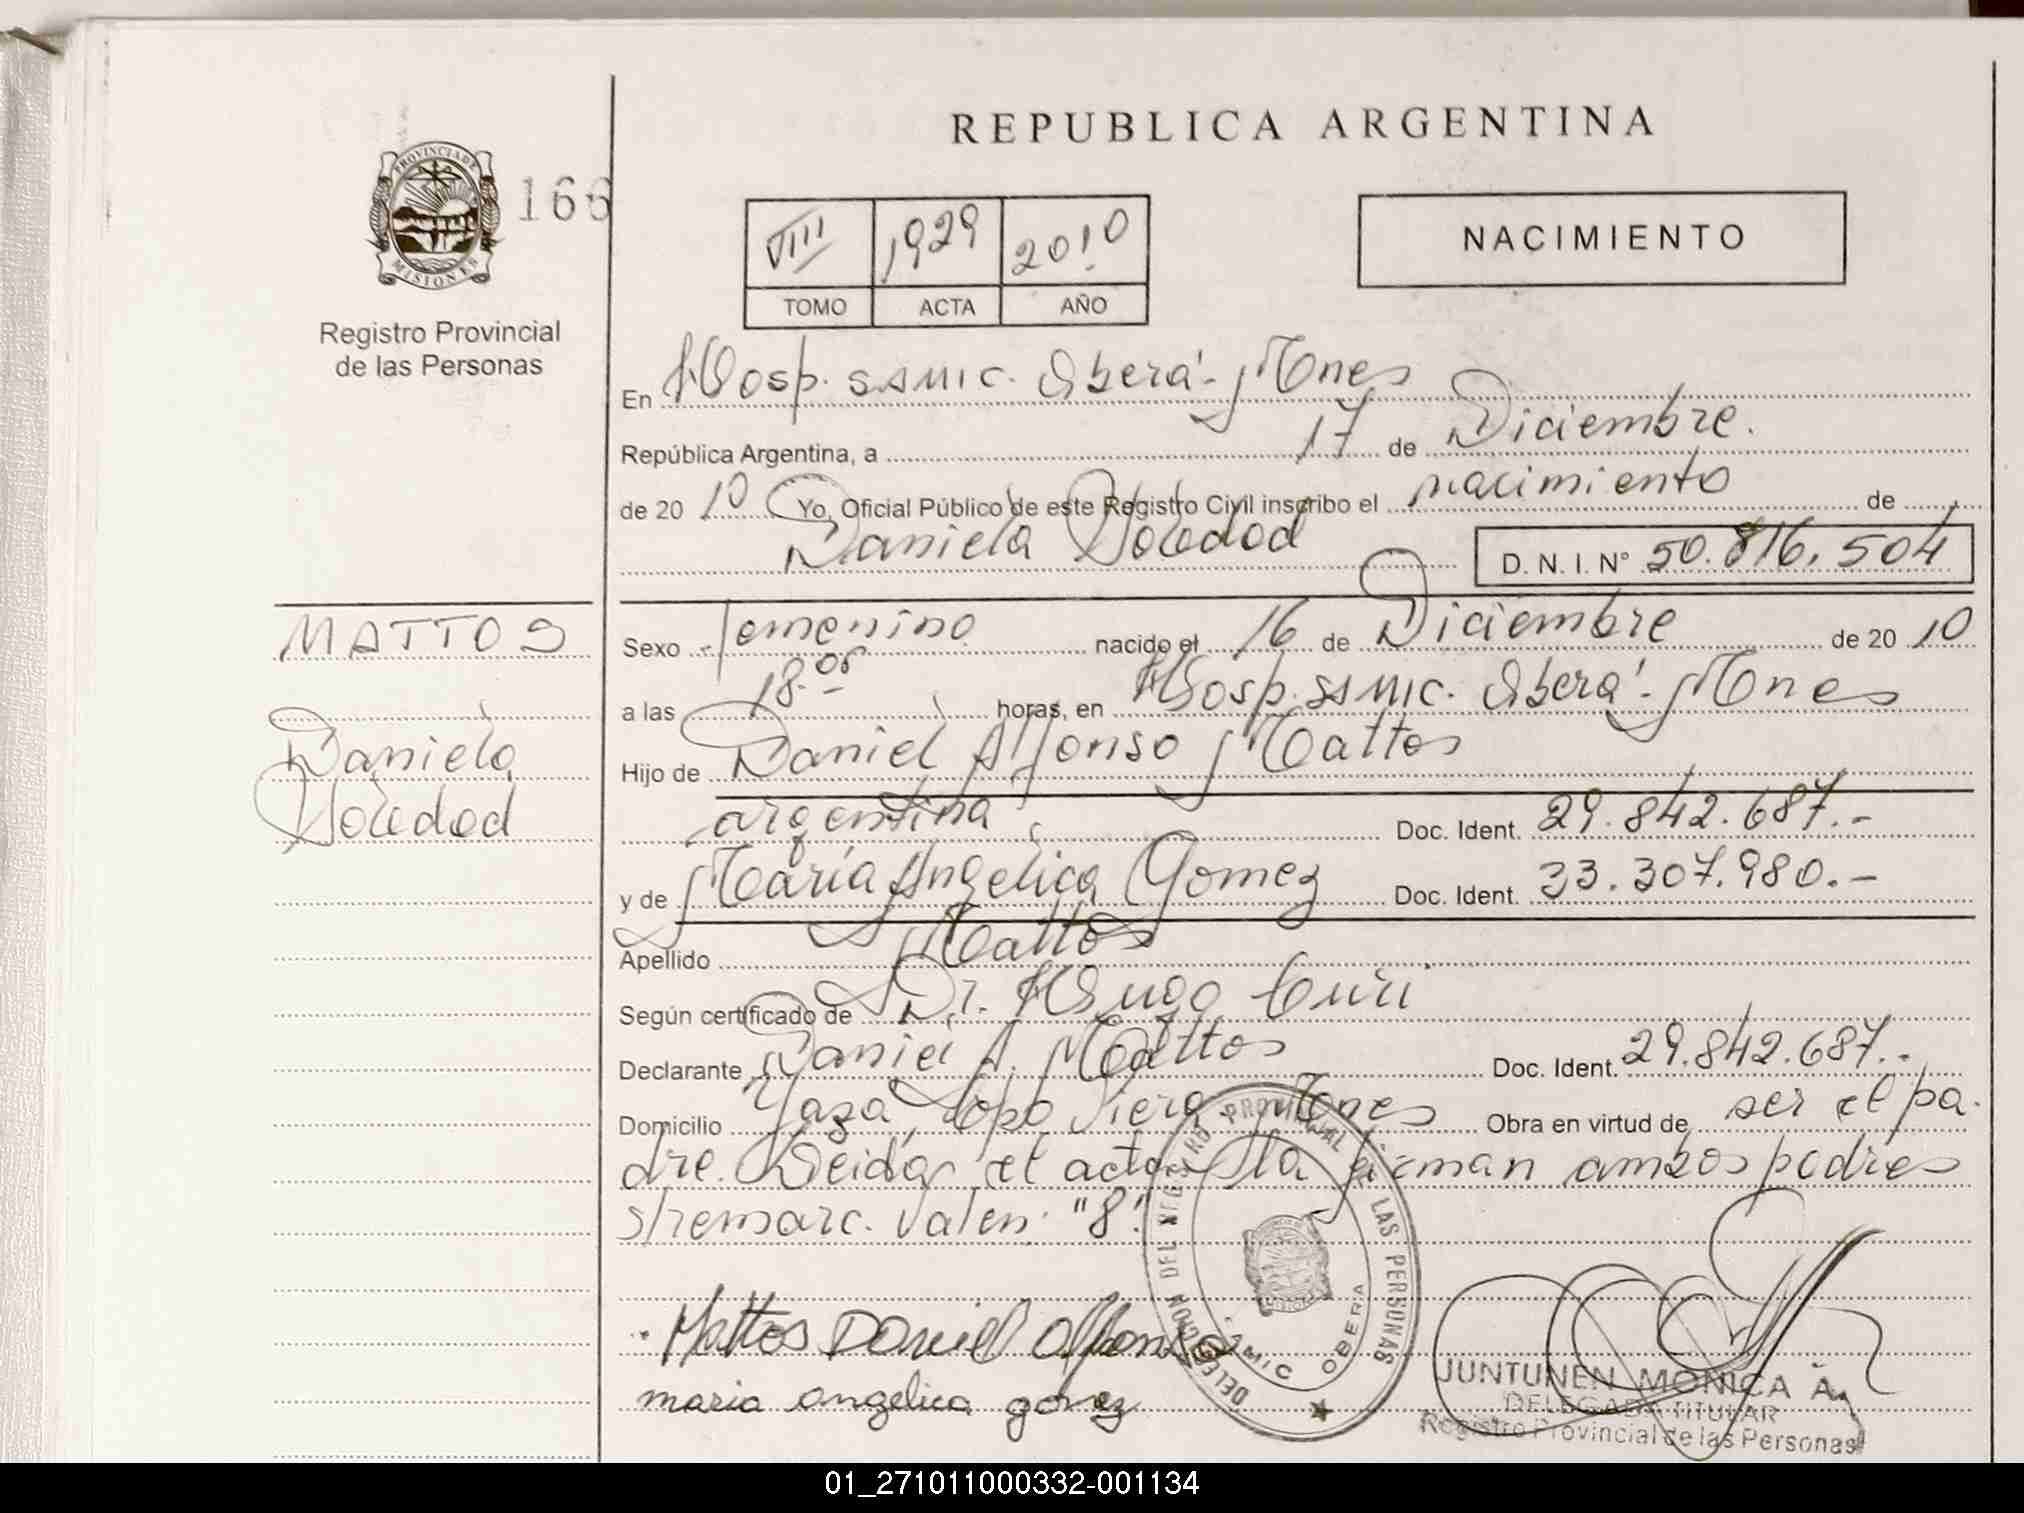 REPUBLICA ARGENTINA
PROVINCIA DE
MISIONES
166
VIII 1929 2010
TOMO ACTA AÑO
NACIMIENTO
Registro Provincial
de las Personas
En Hosp. SAMIC. Oberá - Mnes
República Argentina, a 17 de Diciembre.
de 20 10 Yo, Oficial Público de este Registro Civil inscribo el nacimiento de
Daniela Soledad D. N. I. N° 50.816.504
MATTOS
Daniela
Soledad
Sexo Femenino nacido el 16 de Diciembre de 20 10
a las 18.05 horas, en Hosp. SAMIC. Oberá - Mnes
Hijo de Daniel Alfonso Mattos
argentina Doc. Ident. 29.842.687.-
y de María Angelica Gomez Doc. Ident. 33.307.980.-
Apellido Mattos
Según certificado de Dr. Hugo Curi
Declarante Daniel A. Mattos Doc. Ident. 29.842.687.-
Domicilio Yazá, Dpo Mones Obra en virtud de ser el pa-
dre. Leída el acta la firman ambos padres
s/remarc. Valen: "8".
Mattos Daniel Alfonso
maria angelica gomez
DELEGACION DEL REGISTRO PROVINCIAL DE LAS PERSONAS
SAMIC OBERA
JUNTUNEN MONICA A.
DELEGADA TITULAR
Registro Provincial de las Personas
01_271011000332-001134